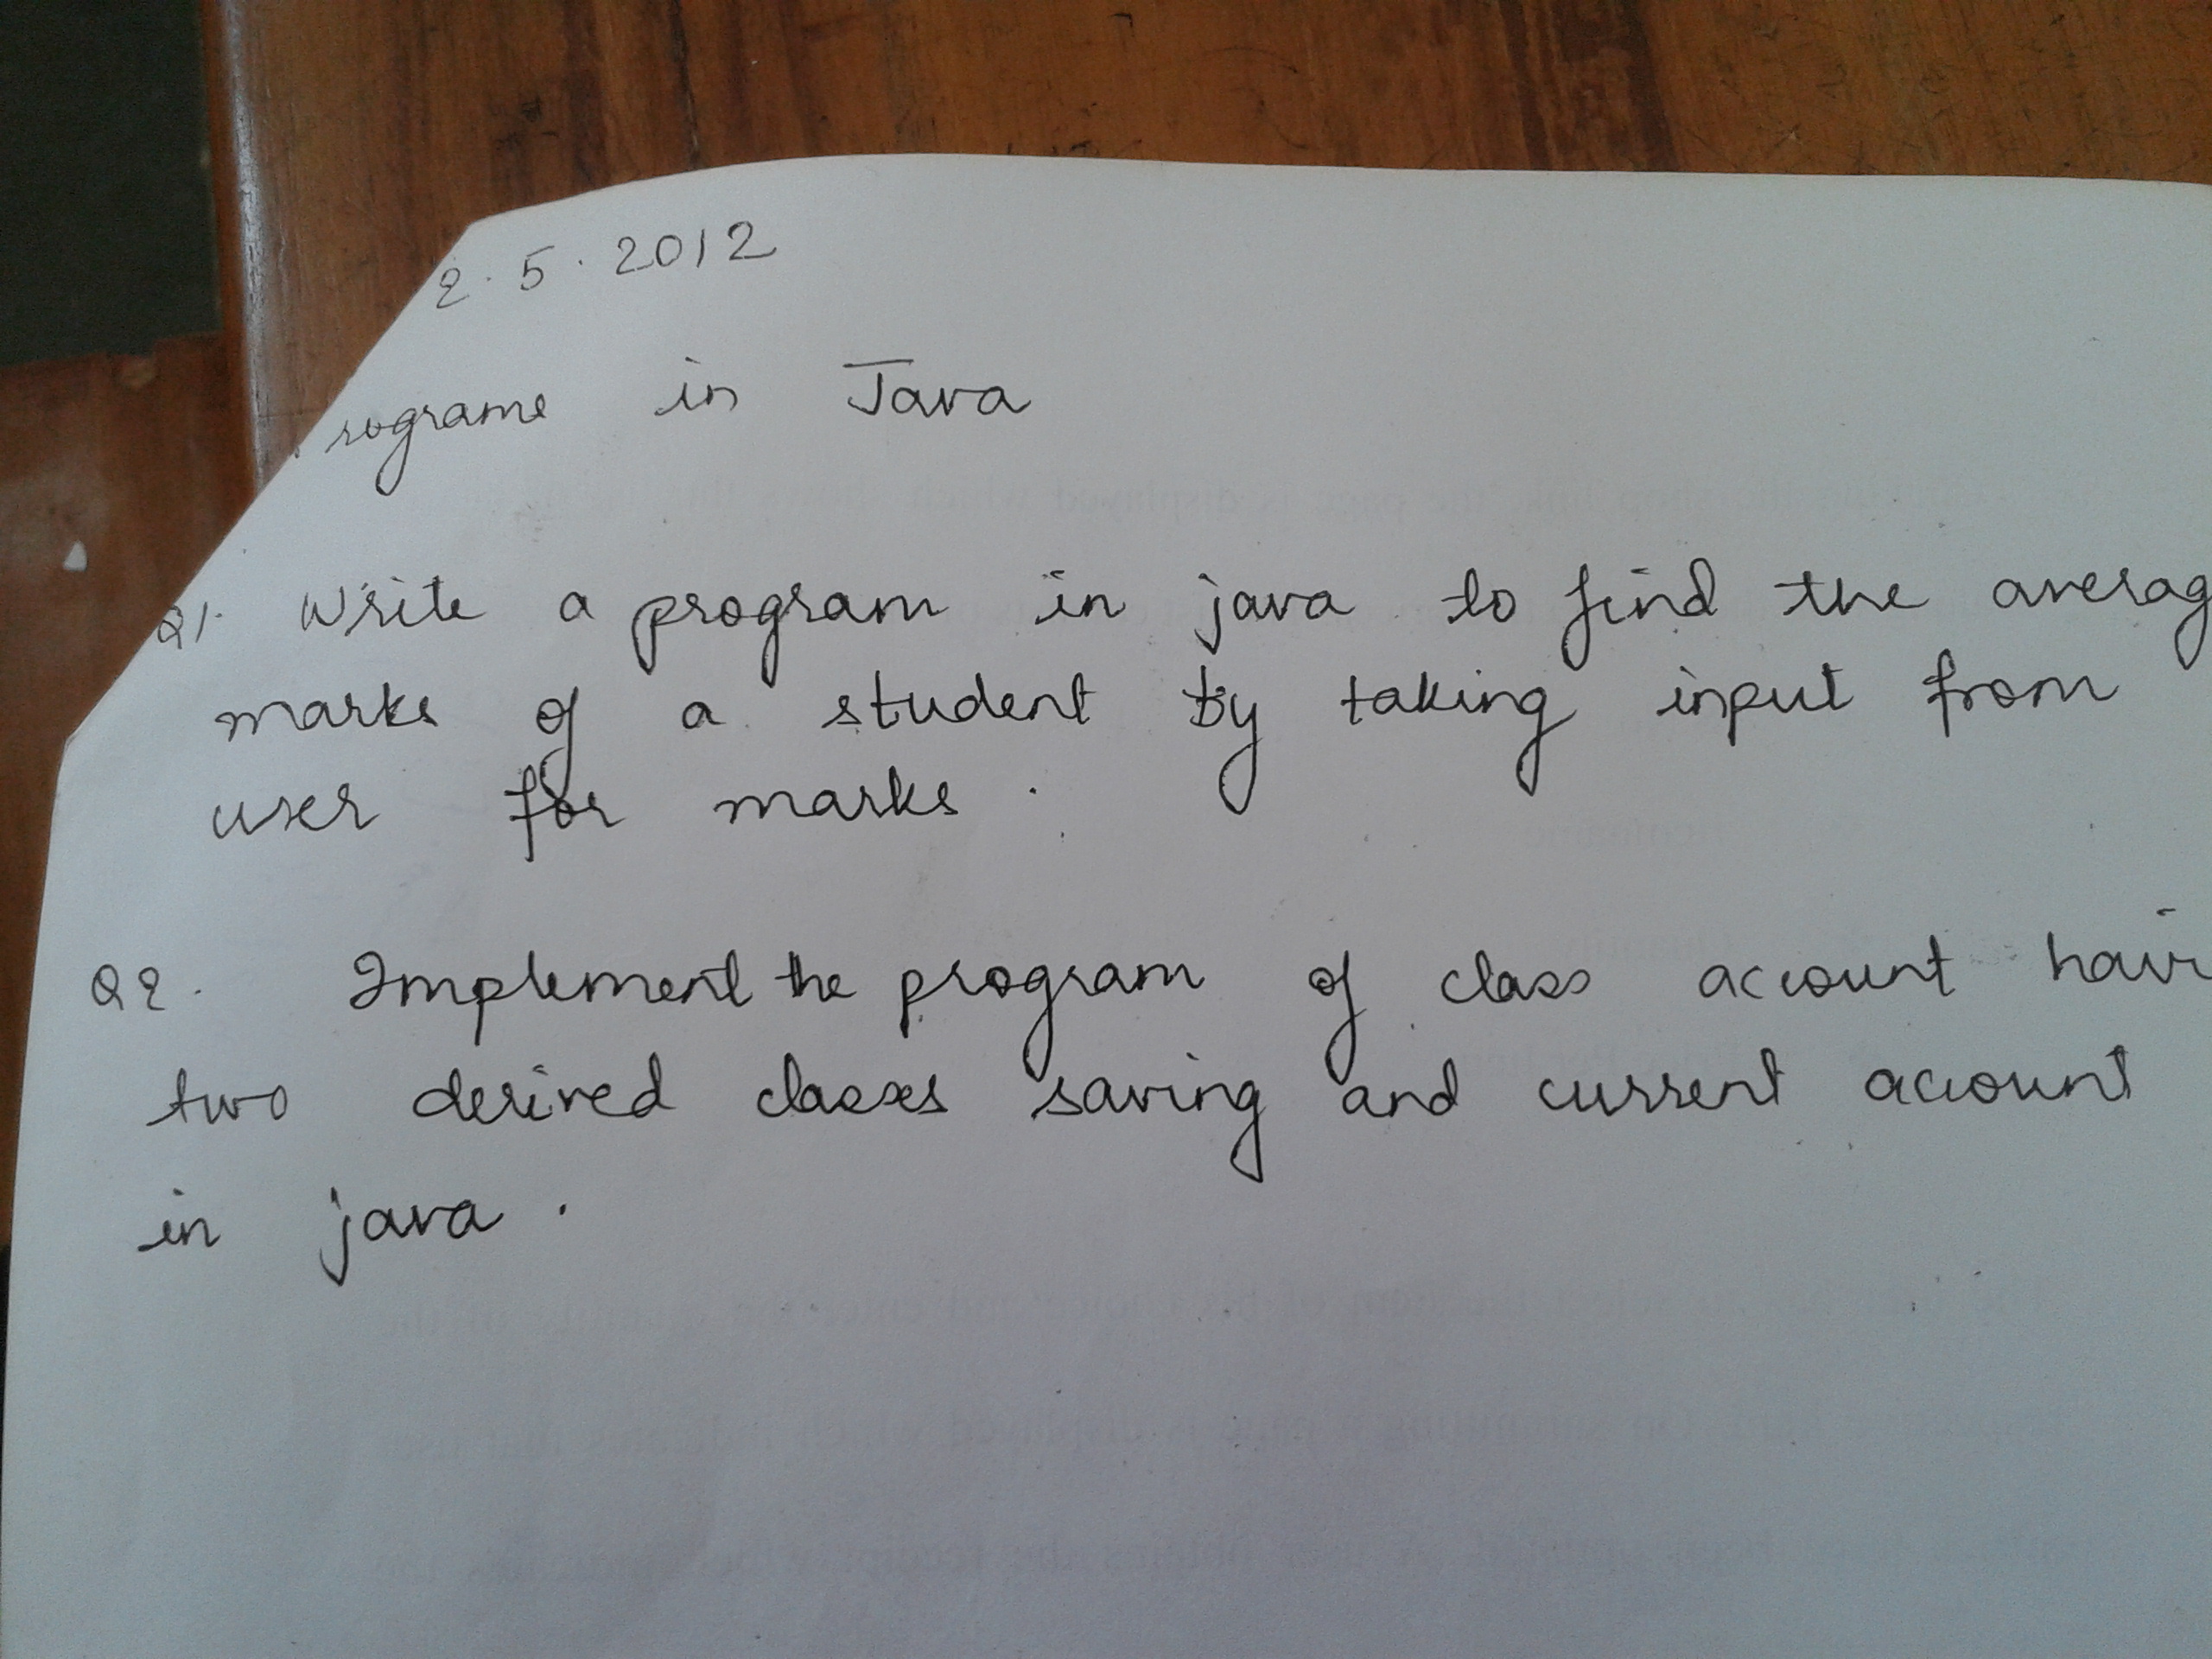 2.5.2012
rograme in Java
Q1. Write a program in java to find the averag
marks of a student by taking input from
user for marks.
Q2. Implement the program of class account havi
two derived classes saving and current account
in java.